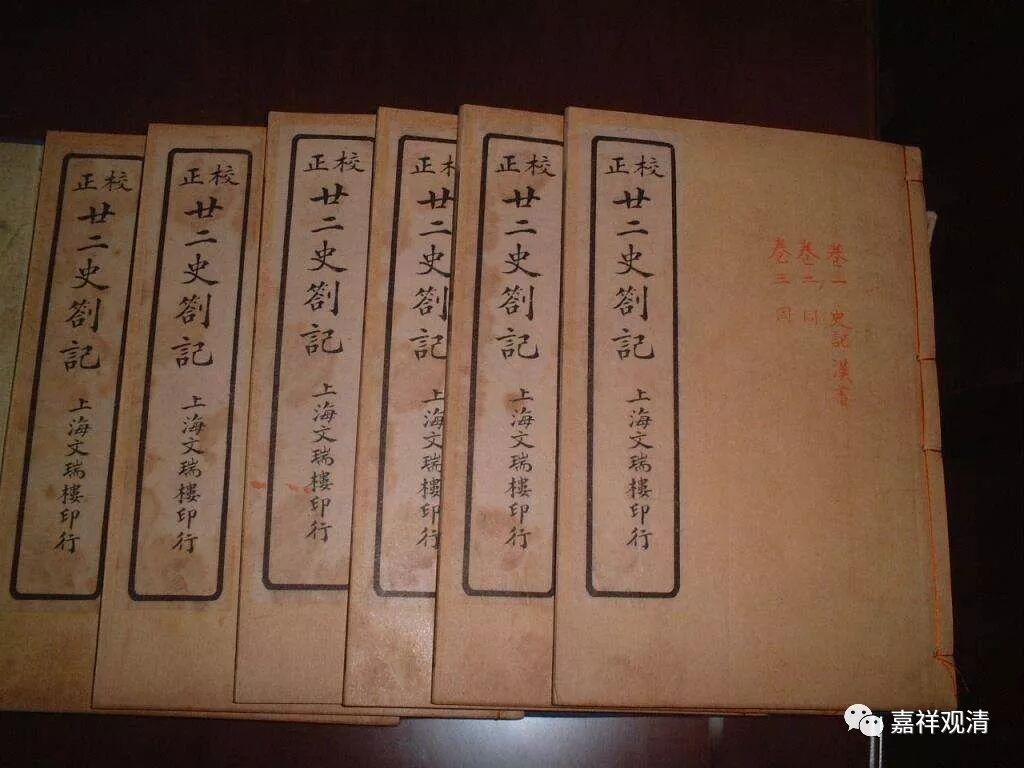 卷一 史記 漢書
卷二 同
卷三 同
校正
廿二史劄記
上海文瑞樓印行
校正
廿二史劄記
上海文瑞樓印行
校正
廿二史劄記
上海文瑞樓印行
校正
廿二史劄記
上海文瑞樓印行
校正
廿二史劄記
上海文瑞樓印行
校正
廿二史劄記
上海文瑞樓印行
嘉祥观清